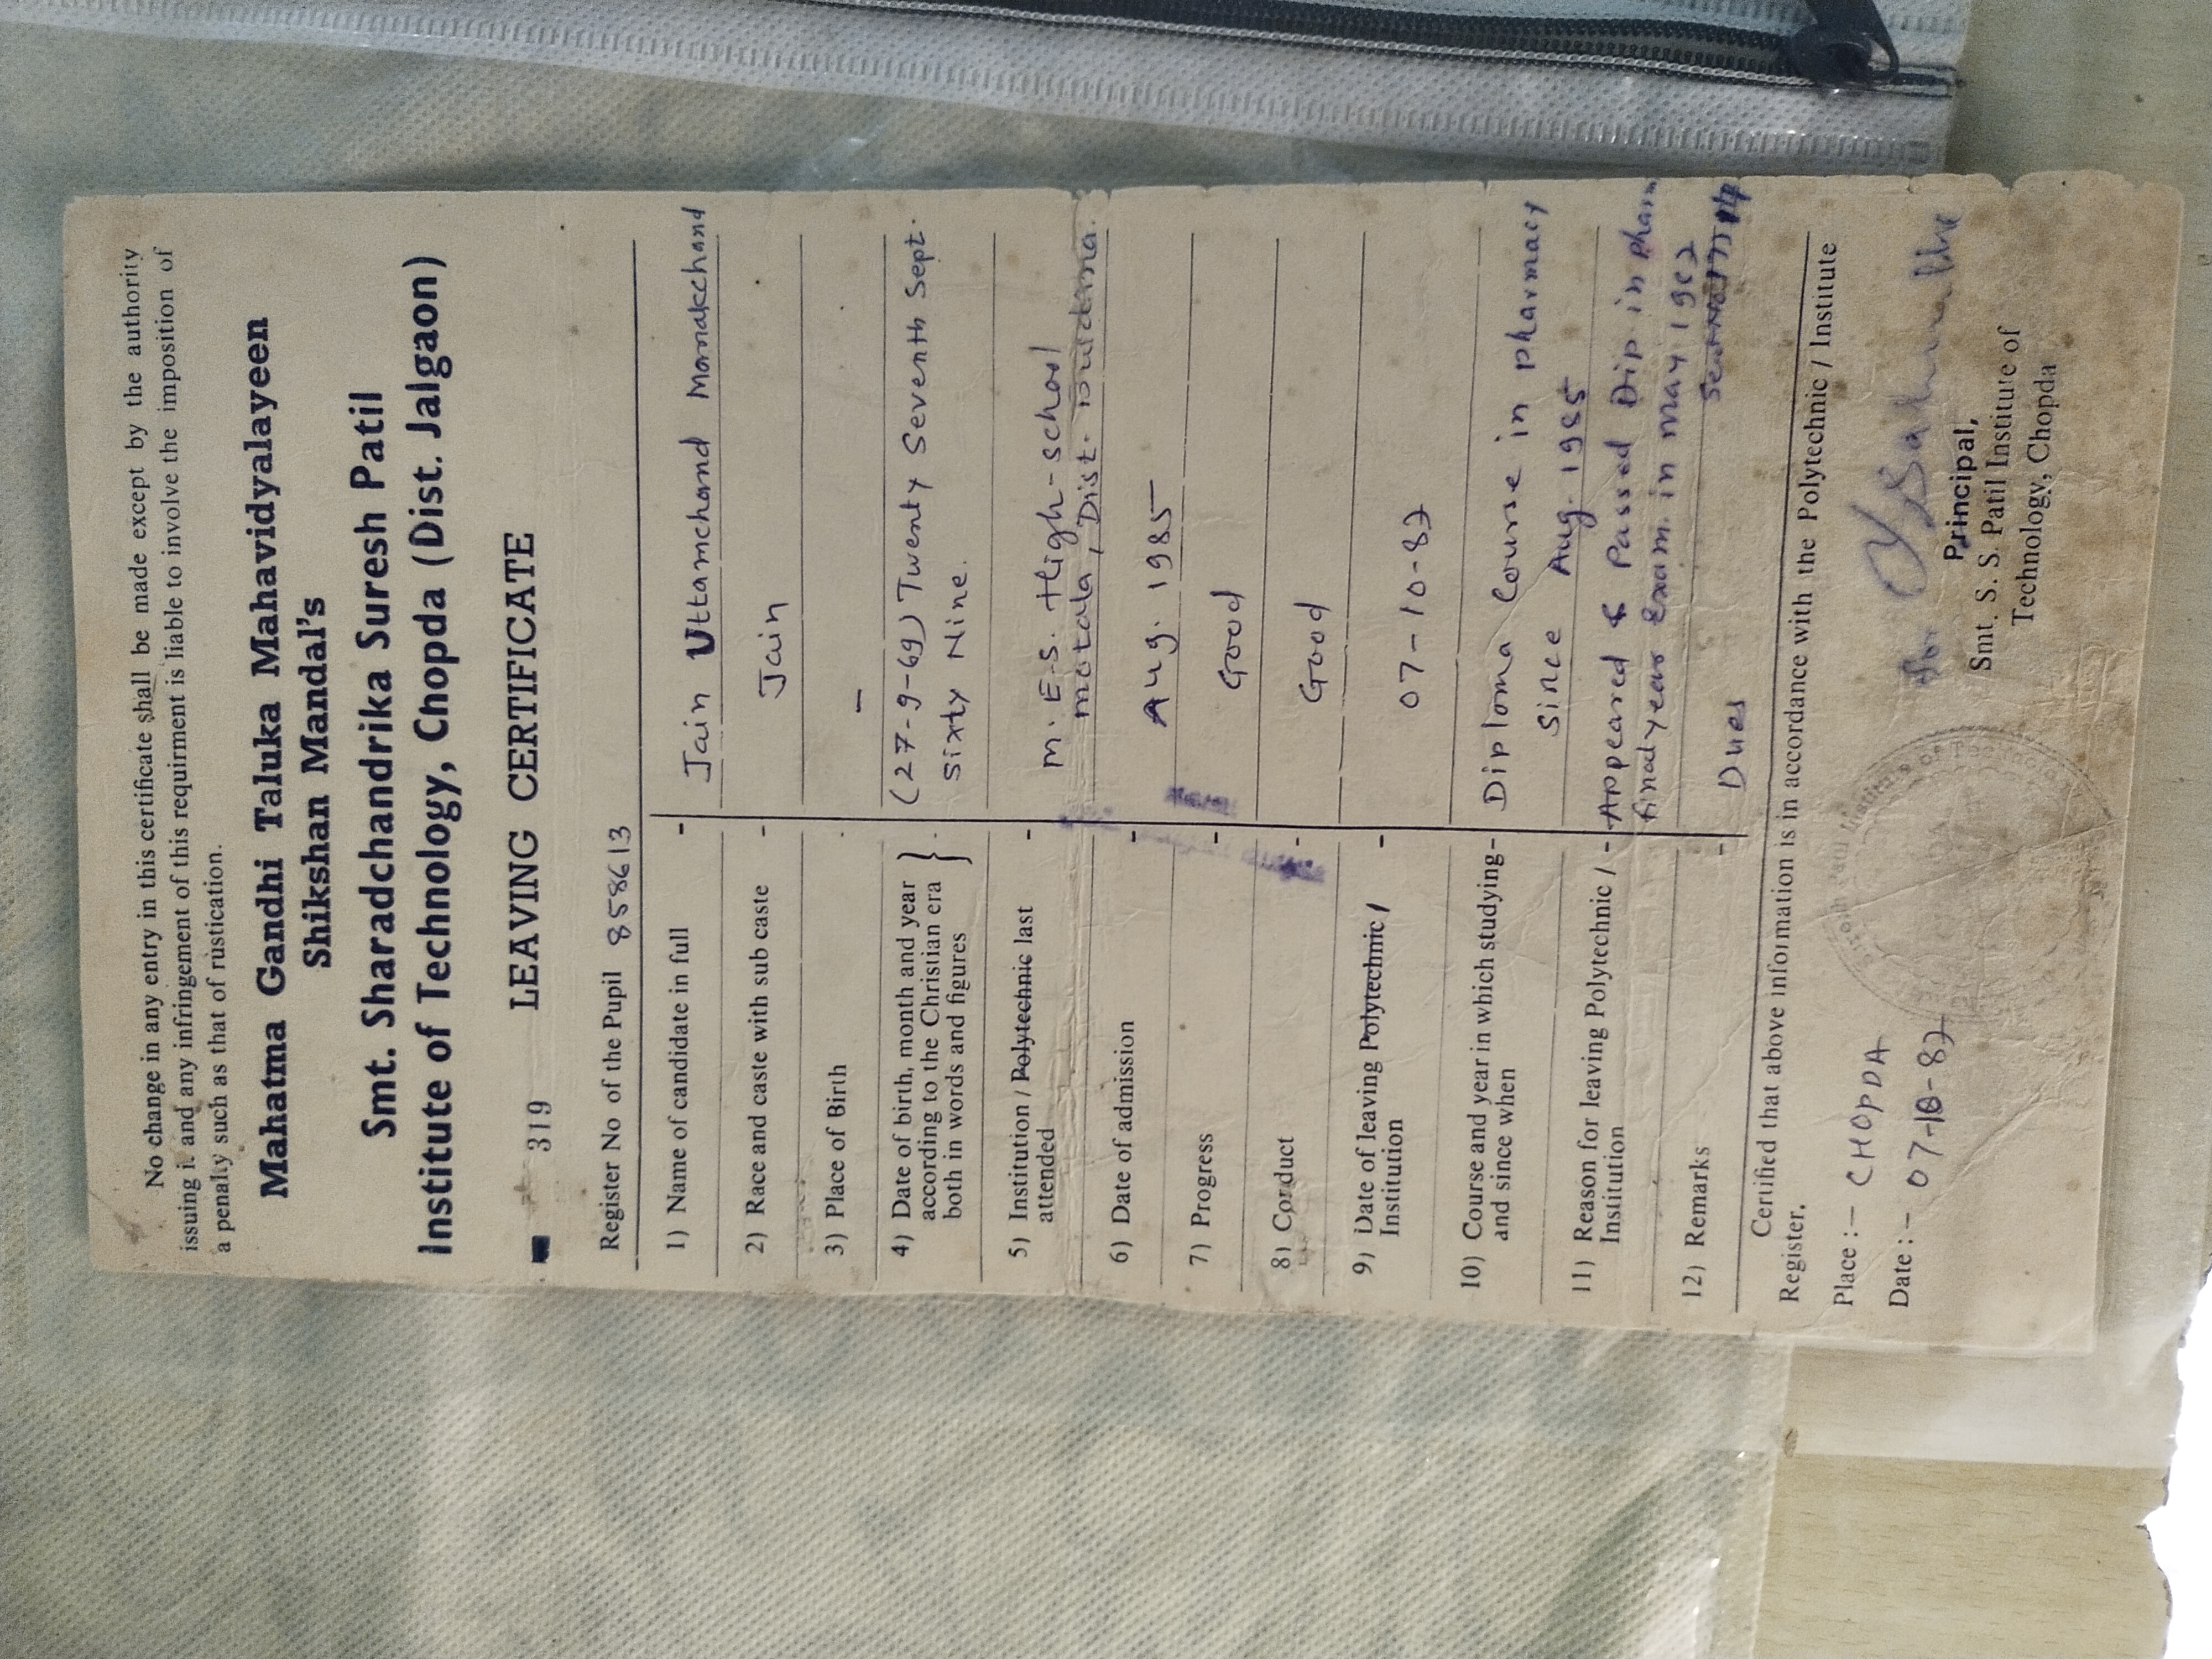 No change in any entry in this certificate shall be made except by the authority
issuing i. and any infringement of this requirment is liable to involve the imposition of
a penalty such as that of rustication.
Mahatma Gandhi Taluka Mahavidyalayeen
Shikshan Mandal's
Smt. Sharadchandrika Suresh Patil
Institute of Technology, Chopda (Dist. Jalgaon)
319 LEAVING CERTIFICATE
Register No of the Pupil 858613
1) Name of candidate in full - Jain Uttamchand Manakchand
2) Race and caste with sub caste - Jain
3) Place of Birth - —
4) Date of birth, month and year } (27-9-69) Twenty Seventh Sept.
according to the Christian era Sixty Nine.
both in words and figures
5) Institution / Polytechnic last - M. E.S. High-school
attended motala, Dist.
6) Date of admission - Aug. 1985
7) Progress - Good
8) Conduct - Good
9) Date of leaving Polytechnic / - 07-10-87
Institution
10) Course and year in which studying- Diploma Course in pharmacy
and since when Since Aug. 1985
11) Reason for leaving Polytechnic / - Appeared & Passed Dip in pharm
Institution final year Exam. in may 1987
12) Remarks - Dues
Certified that above information is in accordance with the Polytechnic / Institute
Register.
Place :- CHOPDA
Date :- 07-10-87
Principal,
Smt. S. S. Patil Institute of
Technology, Chopda